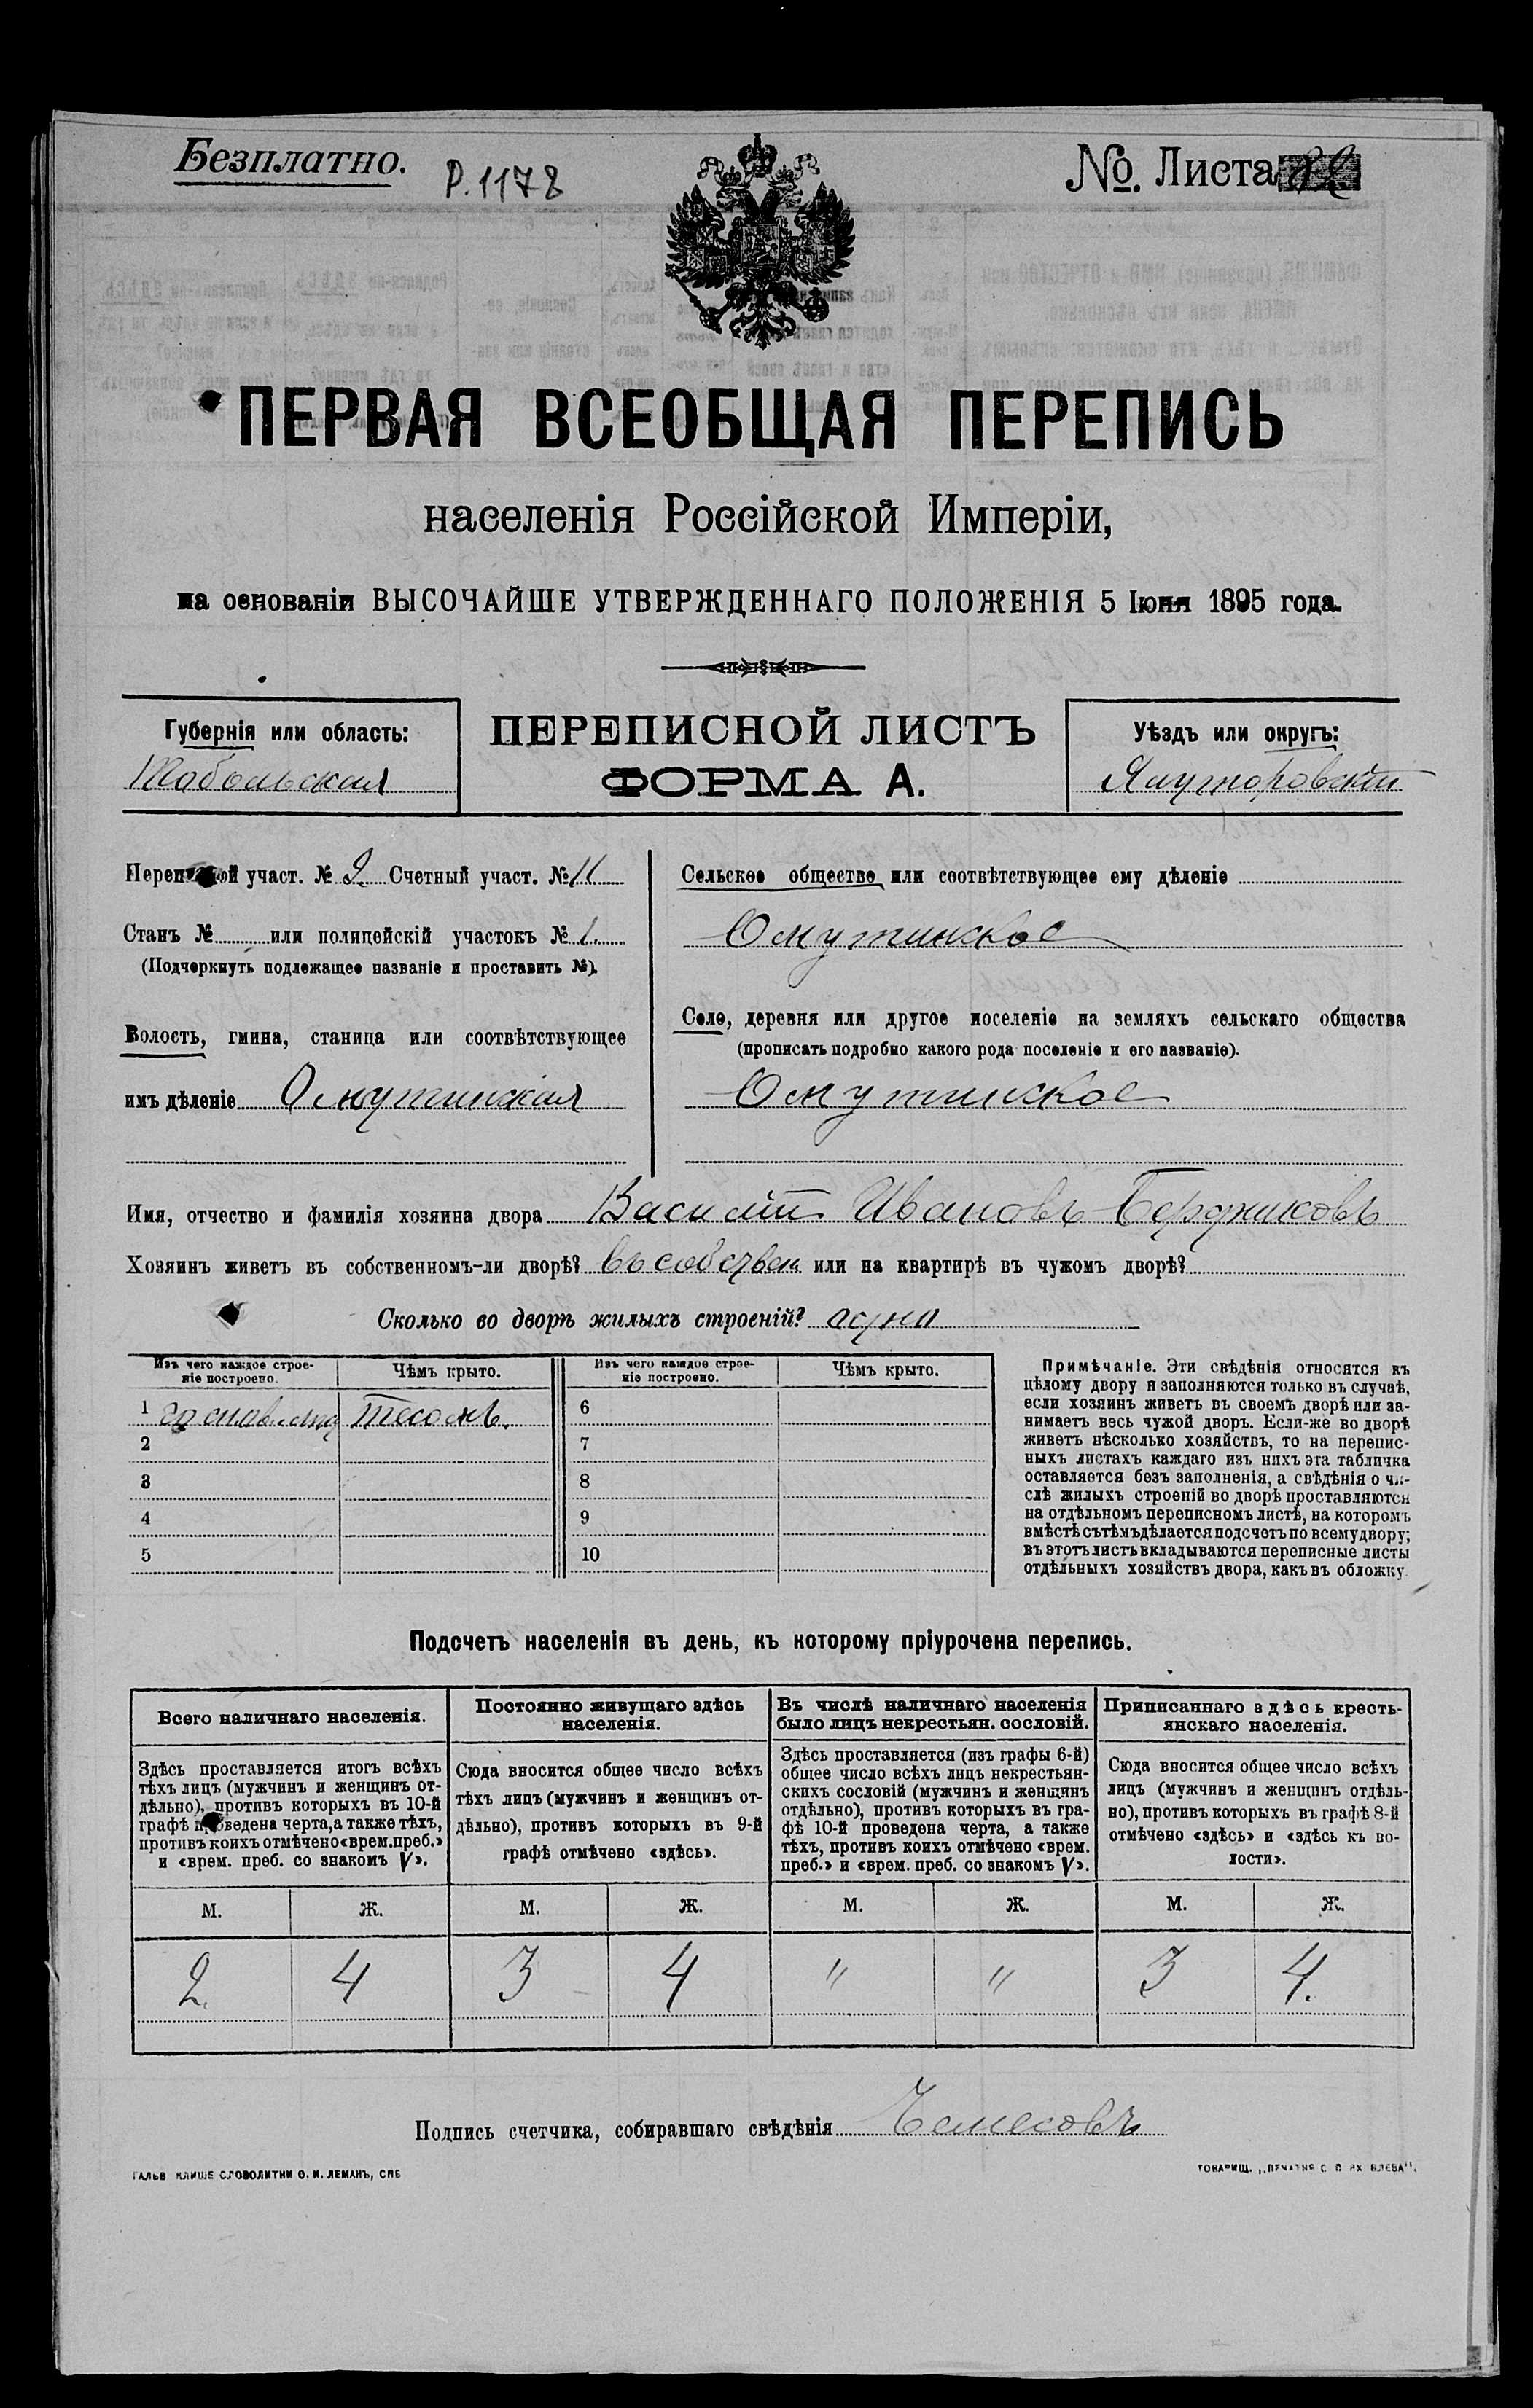 Безплатно.
Р. 1178
№. Листа
ПЕРВАЯ ВСЕОБЩАЯ ПЕРЕПИСЬ
населенія Россійской Имперіи,
на основаніи ВЫСОЧАЙШЕ УТВЕРЖДЕННАГО ПОЛОЖЕНІЯ 5 Іюня 1895 года.
Губернія или область:
Тобольская
ПЕРЕПИСНОЙ ЛИСТЪ
ФОРМА А.
Уѣздъ или округъ:
Ялуторовскій
Переписной участ. № 2 Счетный участ. № 11
Станъ № или полицейскій участокъ № 1.
(Подчеркнуть подлежащее названіе и проставить №).
Волость, гмина, станица или соотвѣтствующее
имъ дѣленіе Омутинская
Сельское общество или соотвѣтствующее ему дѣленіе
Омутинское
Село, деревня или другое поселеніе на земляхъ сельскаго общества
(прописать подробно какого рода поселеніе и его названіе).
Омутинское
Имя, отчество и фамилія хозяина двора Василій Ивановъ
Хозяинъ живетъ въ собственномъ-ли дворѣ? въ собствен или на квартирѣ въ чужомъ дворѣ?
Сколько во дворѣ жилыхъ строеній? адно
Изъ чего каждое строе-
ніе построено.
Чѣмъ крыто.
Изъ чего каждое строе-
ніе построено.
Чѣмъ крыто.
1 тесомъ. 6
2 7
3 8
4 9
5 10
Примѣчаніе. Эти свѣдѣнія относятся къ
цѣлому двору и заполняются только въ случаѣ,
если хозяинъ живетъ въ своемъ дворѣ или за-
нимаетъ весь чужой дворъ. Если-же во дворѣ
живетъ нѣсколько хозяйствъ, то на перепис-
ныхъ листахъ каждаго изъ нихъ эта табличка
оставляется безъ заполненія, а свѣдѣнія о чи-
слѣ жилыхъ строеній во дворѣ проставляются
на отдѣльномъ переписномъ листѣ, на которомъ
вмѣстѣ съ тѣмъ дѣлается подсчетъ по всему двору;
въ этотъ листъ вкладываются переписные листы
отдѣльныхъ хозяйствъ двора, какъ въ обложку.
Подсчетъ населенія въ день, къ которому пріурочена перепись.
Всего наличнаго населенія.
Здѣсь проставляется итогъ всѣхъ
тѣхъ лицъ (мужчинъ и женщинъ от-
дѣльно), противъ которыхъ въ 10-й
графѣ проведена черта, а также тѣхъ,
противъ коихъ отмѣчено «врем. преб.»
и «врем. преб. со знакомъ V».
Постоянно живущаго здѣсь
населенія.
Сюда вносится общее число всѣхъ
тѣхъ лицъ (мужчинъ и женщинъ от-
дѣльно), противъ которыхъ въ 9-й
графѣ отмѣчено «здѣсь».
Въ числѣ наличнаго населенія
было лицъ некрестьян. сословій.
Здѣсь проставляется (изъ графы 6-й)
общее число всѣхъ лицъ некрестьян-
скихъ сословій (мужчинъ и женщинъ
отдѣльно), противъ которыхъ въ гра-
фѣ 10-й проведена черта, а также
тѣхъ, противъ коихъ отмѣчено «врем.
преб.» и «врем. преб. со знакомъ V».
Приписаннаго здѣсь кресть-
янскаго населенія.
Сюда вносится общее число всѣхъ
лицъ (мужчинъ и женщинъ отдѣль-
но), противъ которыхъ въ графѣ 8-й
отмѣчено «здѣсь» и «здѣсь къ во-
лости».
М. Ж. М. Ж. М. Ж. М. Ж.
2. 4 3 4 " " 3 4.
Подпись счетчика, собиравшаго свѣдѣнія
ГАЛЬВ КЛИШЕ СЛОВОЛИТНИ О. И. ЛЕМАНЪ, СПБ
ТОВАРИЩ. „ПЕЧАТНЯ С. П.